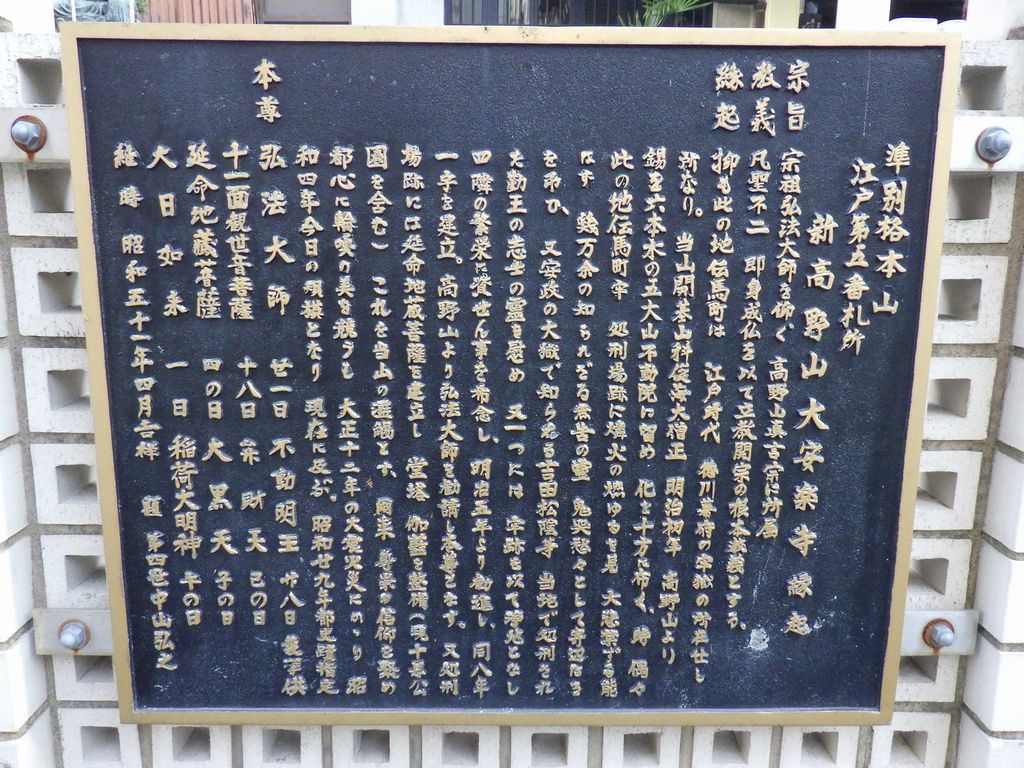 準別格本山
江戸第五番札所
新高野山大安楽寺縁起
宗旨 宗祖弘法大師を仰ぐ 高野山真言宗に所属
教義 凡聖不二 即身成仏を以て立教開宗の根本教義とする。
縁起 抑も此の地 伝馬町は 江戸時代 徳川幕府の牢獄の所在せし
所なり。 当山開基山科俊海大僧正 明治初年 高野山より
錫を六本木の五大山不動院に留め 化を十方に布く、時 偶々
此の地伝馬町牢 処刑場跡に燐火の燃ゆるを見
なす 幾万余の知られざる
を弔ひ、 又安政の大獄で知らるる吉田松陰等 当地で処刑され
た勤王の志士の霊を慰め 又一つには 牢跡を以て浄地となし
四隣の繁栄に資せん事を発念し、明治五年より勧進し、同八年
一宇を建立。高野山より弘法大師を勧請し本尊となす。又処刑
場跡には延命地蔵菩薩を建立し 堂塔 伽藍を整備(現十思公
園を含む) これを当山の濫觴とす、爾来 尊崇の信仰を聚め
都心に輪奐の美を競うも 大正十二年の大震災火にあゝり 昭
和四年今日の規模となり 現在に及ぶ。 昭和廿九年都史蹟指定
本尊
弘法大師 廿一日 不動明王 廿八日 護摩供
十一面観世音菩薩 十八日 弁財天 巳の日
延命地蔵菩薩 四の日 大黒天 子の日
大日如来 一日 稲荷大明神 午の日
維時 昭和五十一年四月吉祥 題 第四世中山弘之